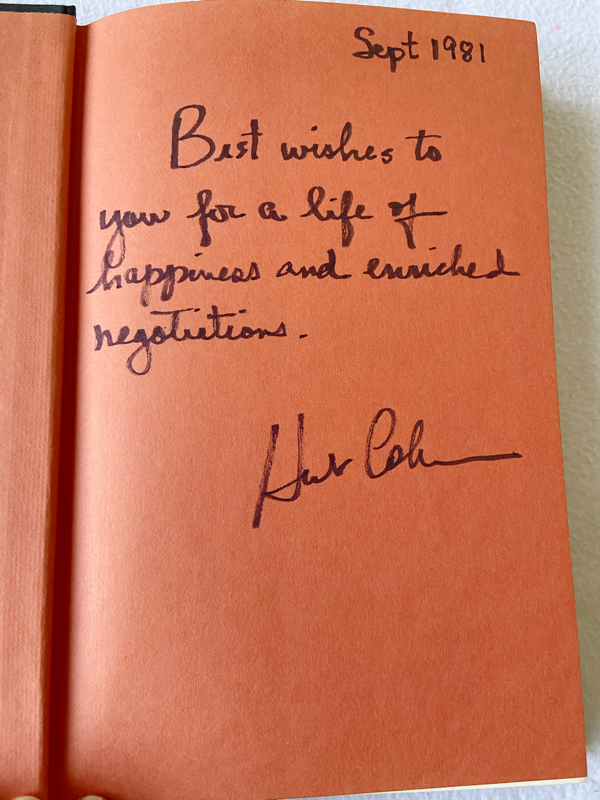 Sept 1981
Best wishes to
you for a life of
happiness and enriched
negotiations.
Herb Cohen